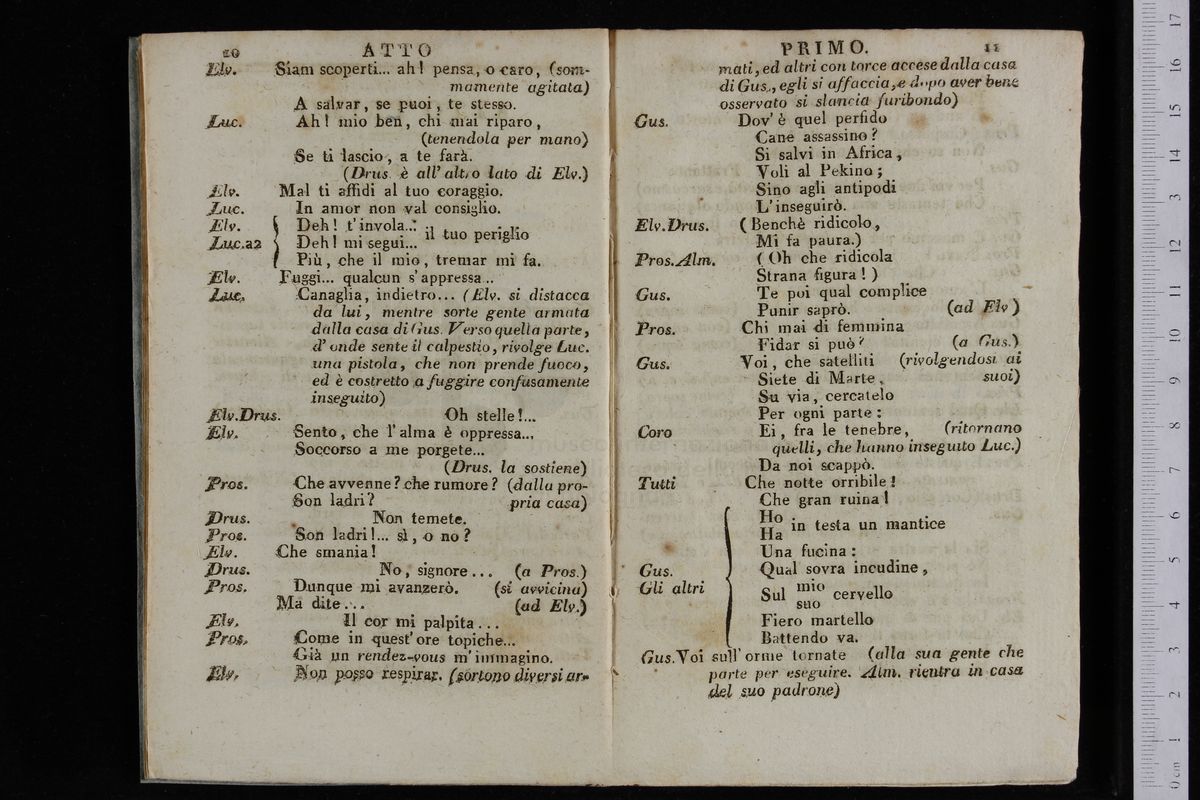 10 ATTO
Elv. Siam scoperti... ah! pensa, o caro, (som-
mamente agitata)
A salvar, se puoi, te stesso.
Luc. Ah! mio ben, chi mai riparo,
(tenendola per mano)
Se ti lascio, a te farà.
(Drus. è all' altro lato di Elv.)
Elv. Mal ti affidi al tuo coraggio.
Luc. In amor non val consiglio.
Elv. Deh! t'invola... il tuo periglio
Luc.a2 Deh! mi segui...
Più, che il mio, tremar mi fa.
Elv. Fuggi... qualcun s'appressa...
Luc. Canaglia, indietro... (Elv. si distacca
da lui, mentre sorte gente armata
dalla casa di Gus. Verso quella parte,
d'onde sente il calpestio, rivolge Luc.
una pistola, che non prende fuoco,
ed è costretto a fuggire confusamente
inseguito)
Elv.Drus. Oh stelle!...
Elv. Sento, che l'alma è oppressa...
Soccorso a me porgete...
(Drus. la sostiene)
Pros. Che avvenne? che rumore? (dalla pro-
Son ladri? pria casa)
Drus. Non temete.
Pros. Son ladri!... sì, o no?
Elv. Che smania!
Drus. No, signore... (a Pros.)
Pros. Dunque mi avanzerò. (si avvicina)
Ma dite... (ad Elv.)
Elv. Il cor mi palpita...
Pros. Come in quest'ore topiche...
Già un rendez-vous m'immagino.
Elv. Non posso respirar. (sortono diversi ar-
PRIMO. 11
mati, ed altri con torce accese dalla casa
di Gus., egli si affaccia, e dopo aver bene
osservato si slancia furibondo)
Gus. Dov'è quel perfido
Cane assassino?
Si salvi in Africa,
Voli al Pekino;
Sino agli antipodi
L'inseguirò.
Elv.Drus. (Benchè ridicolo,
Mi fa paura.)
Pros.Alm. (Oh che ridicola
Strana figura!)
Gus. Te poi qual complice
Punir saprò. (ad Elv)
Pros. Chi mai di femmina
Fidar si può? (a Gus.)
Gus. Voi, che satelliti (rivolgendosi ai
Siete di Marte, suoi)
Su via, cercatelo
Per ogni parte:
Coro Ei, fra le tenebre, (ritornano
quelli, che hanno inseguito Luc.)
Da noi scappò.
Tutti Che notte orribile!
Che gran ruina!
Ho in testa un mantice
Ha
Una fucina:
Gus. Qual sovra incudine,
Gli altri Sul mio cervello
suo
Fiero martello
Battendo va.
Gus.Voi sull'orme tornate (alla sua gente che
parte per eseguire. Alm. rientra in casa
del suo padrone)